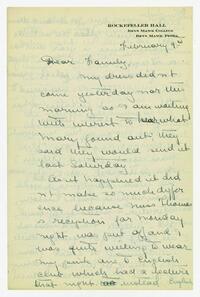 ROCKEFELLER HALL
BRYN MAWR COLLEGE
BRYN MAWR, PENNA.
February 9th
Dear Family,
My dress didn't
come yesterday nor this
morning so I am waiting
with interest to hear what
Mary found out; they
said they would send it
last Saturday.
As it happened it did
n't make so much differ
ence because Miss Thomas'
s reception for Monday
night was put off and I
was quite willing to wear
my pink one to English
Club which had a lecture
that night instead English